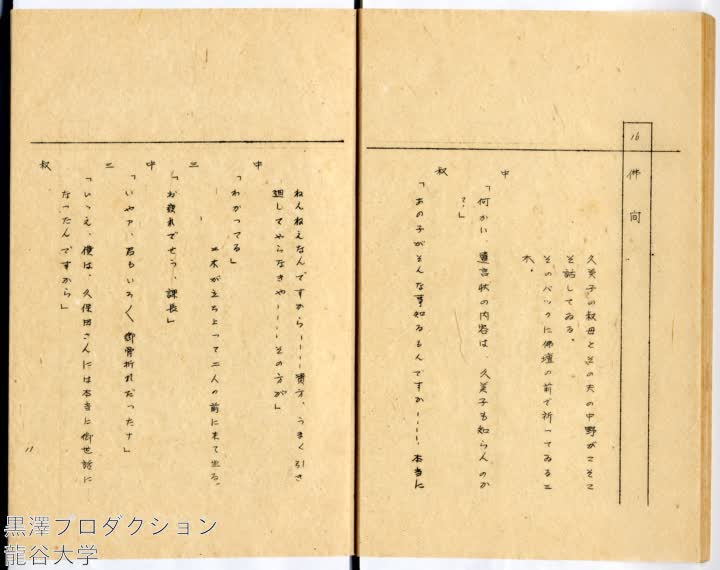 16
佛間
久美子の叔母とその夫の中野がこそこ
そ話してゐる。
そのバックに佛壇の前で祈ってゐる三
木。
中
「何かい 遺言状の内容は、久美子も知らんのか
?」
叔
「あの子がそんな事知るもんですか…… 本当に
ねんねえなんですから…… 貴方、うまく引き
廻してやらなきや…… その方が」
中
「わかつてる」
三木が立ちよつて二人の前に来て坐る。
三
「お疲れでせう、課長」
中
「いやァ、君もいろ〱御骨折れだつたナ」
三
「いゝえ、僕は、久保田さんには本当に御世話に
なつたんですから」
叔
11
黒澤プロダクション
龍谷大学